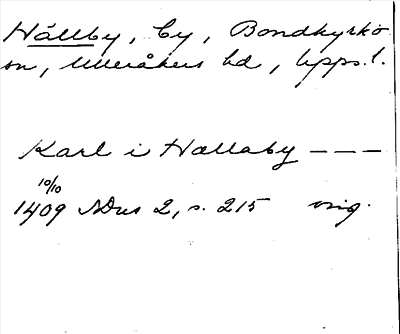 Hällby, by, Bondkyrko
sn, Ulleråkers hd, Upps. l.
Karl i Hællaby ---
10/10
1409 SDns 2, s. 215 orig.